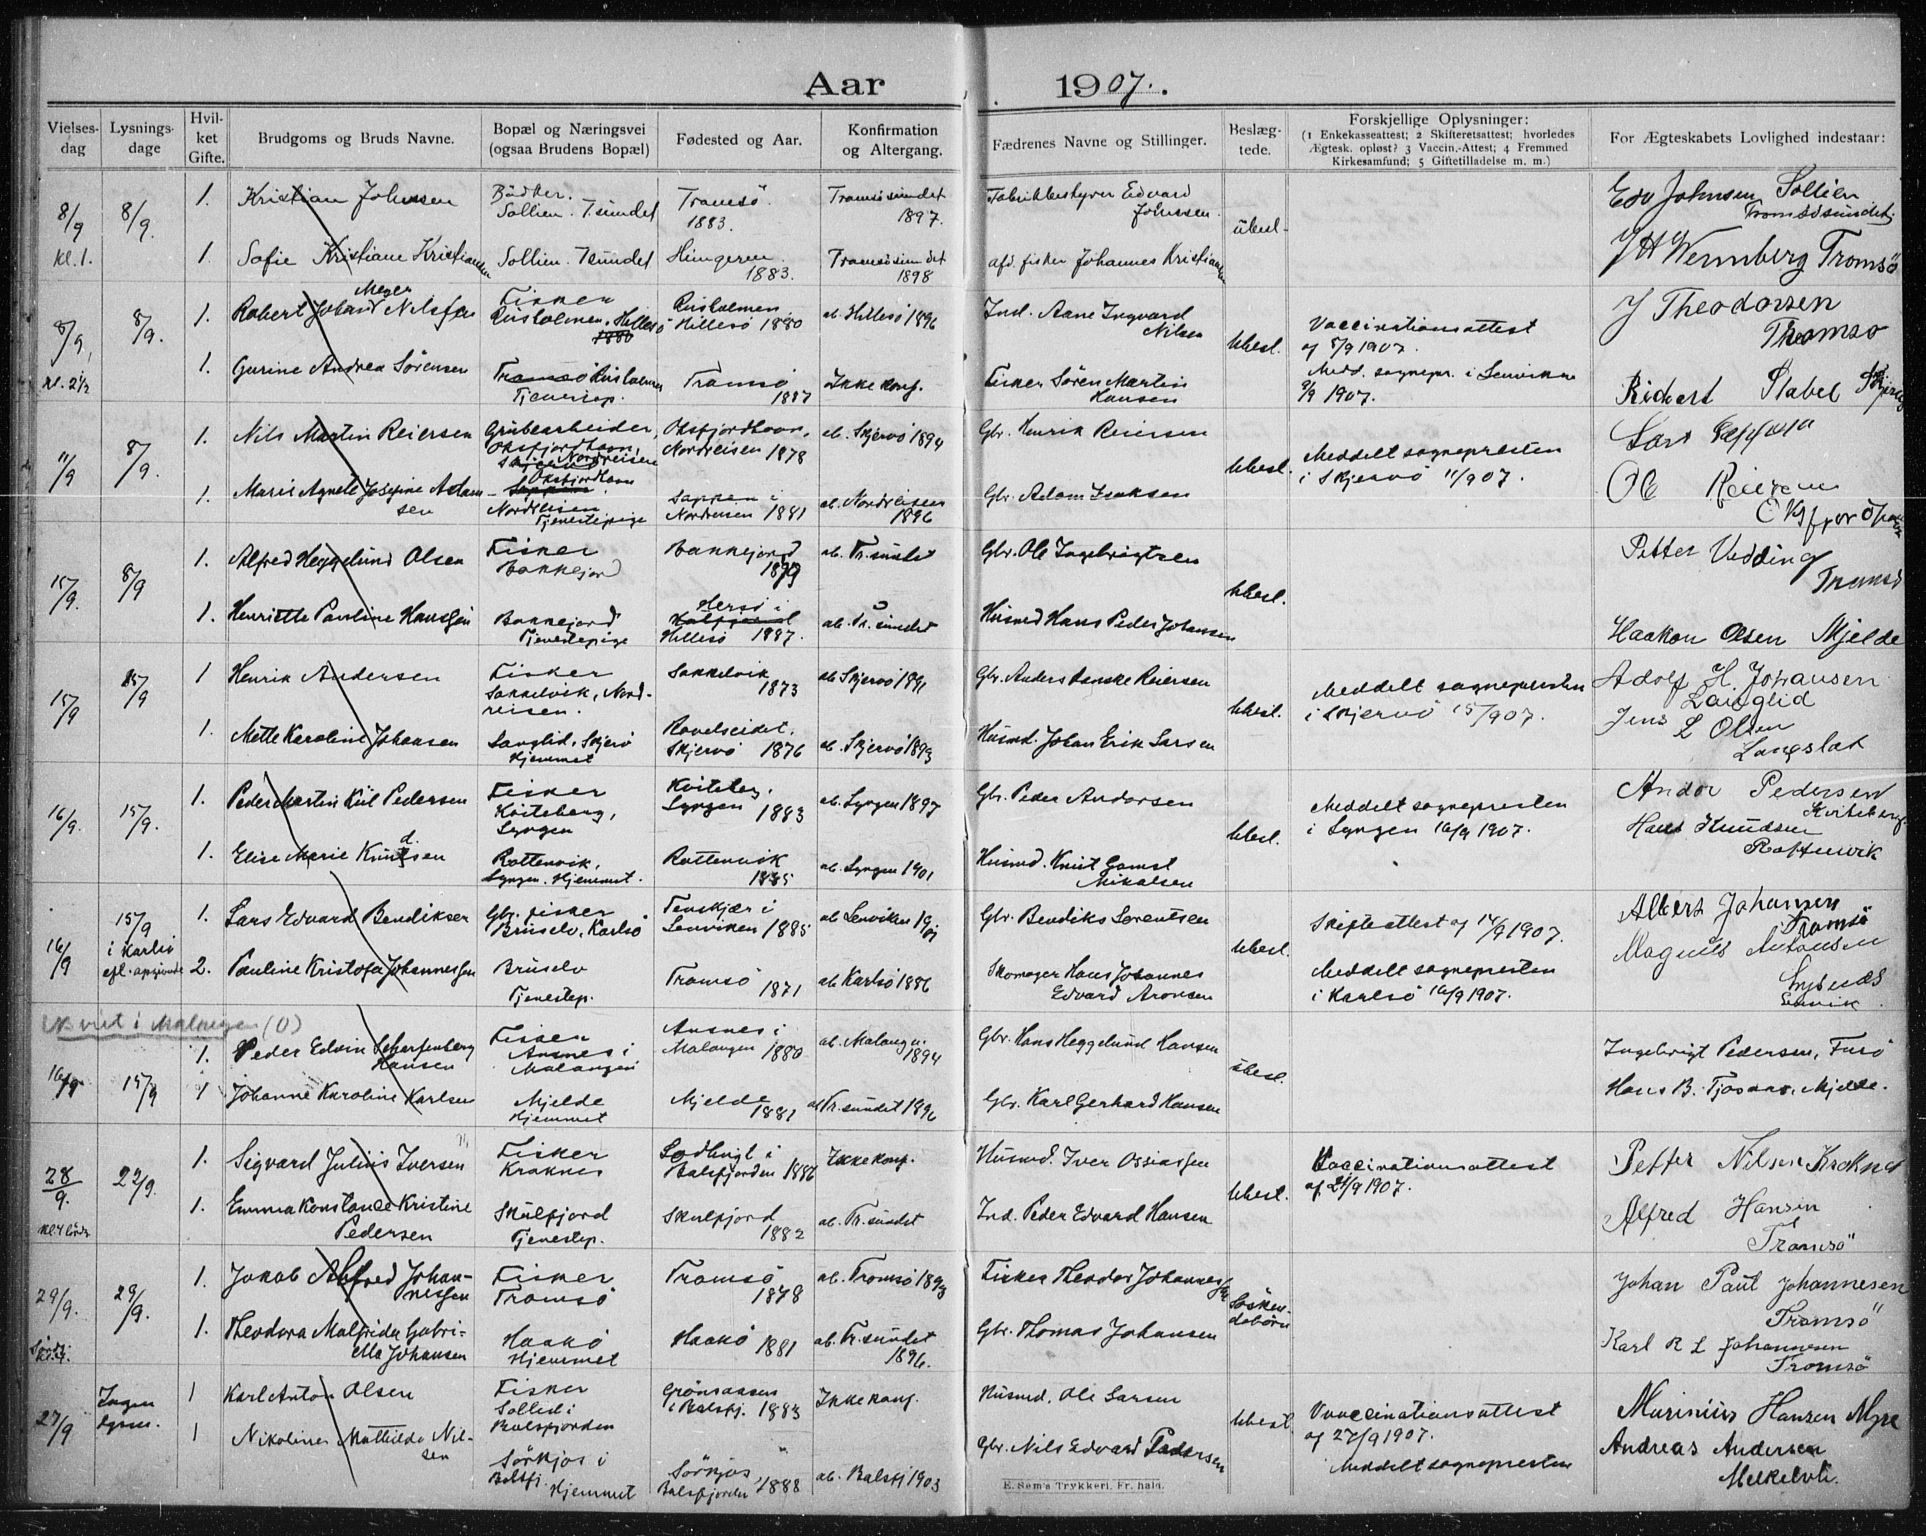 Aar 1907.
Vielses-dag
Lysnings-dage
Hvil-ket Gifte.
Brudgoms og Bruds Navne.
Bopæl og Næringsvei (ogsaa Brudens Bopæl)
Fødested og Aar.
Konfirmation og Altergang.
Fædrenes Navne og Stillinger.
Beslæg-tede.
Forskjellige Oplysninger:
(1 Enkekasseattest; 2 Skifteretsattest; hvorledes
Ægtesk. opløst? 3 Vaccin.-Attest; 4 Fremmed
Kirkesamfund; 5 Giftetilladelse m. m.)
For Ægteskabets Lovlighed indestaar:
8/9 kl. 1.
8/9.
1. Kristian Johnsen
Bödker. Sollien. Tsundet
Tromsö. 1883.
Tromsösundet 1897.
Fabrikbestyrer Edvard Johnsen.
übesl.
Edv Johnsen Sollien
Tromsösundet
1. Sofie Kristiane Kristiansen
Sollien. Tsundet
1883.
Tromsösundet 1898
afd. fisker Johannes Kristiansen
J H Wennberg Tromsö
8/9, kl. 2 1/2
8/9.
1. Robert Johan Meyer Nilssen
Fisker
Risholmen, Hillesö
1880
Risholmen Hillesö 1880
ab. Hillesö 1896
Ind. Aane Ingvard Nilsen
Ubesl.
Vaccinationsattest
af 8/9 1907.
J Theodorsen
Tromsö
1. Gurine Andrea Sørensen
Tromsö Risholmen
Tjenestep.
Tromsö 1887
Ikke konf.
Fisker Sören Martin Hansen
Medd. sognepr. i Lenvik
9/9 1907.
Rickert Stabel
11/9
8/9.
1. Nils Martin Reiersen
Grubearbeider,
Oksfjordhavn,
Nordreisen
Oksfjordhavn, Nordreisen 1878
ab. Skjervö 1894
Gbr. Henrik Reiersen
Ubesl.
Meddelt sognepresten
i Skjervö 11/9 07.
Lars
1. Marie Agnete Josefine Adamsen
Oksfjordhavn
Nordreisen
Tjenestepige
Sappen i Nordreisen 1881
ab. Nordreisen 1896
Gbr. Adam Isaksen
Ole Reiersen
Oksfjordhavn
15/9.
8/9
1. Alfred Heggelund Olsen
Fisker
Bakkejord
Bakkejord 1879
ab. Tr. sundet
Gbr. Ole Ingebrigtsen
Ubesl.
Petter Vedding
Tromsö
1. Henriette Pauline Hanssen
Bakkejord
Tjenestepige
Hersö i Hillesö 1887.
ab. Tr. sundet
Husmd Hans Peder Johansen
Haakon Olsen Mjelde
15/9
15/9
1 Henrik Andersen
Fisker
Sakkelvik, Nordreisen.
Sakkelvik 1873
ab Skjervö 1891
Gbr. Anders Danske Reiersen
Ubesl.
Meddelt sognepresten
i Skjervö 15/9 07.
Adolf H. Johansen
Langlid
1. Mette Karoline Johansen
Langlid, Skjervö
Hjemmet
Ravelseidet. Skjervö 1876
ab. Skjervö 1893
Husmd. Johan Erik Larsen
Jens L Olsen
Langslet
16/9.
15/9.
1. Peder Martin Kiil Pedersen
Fisker
Kviteberg,
Lyngen
Kviteberg, Lyngen 1883
ab. Lyngen 1897
Gbr. Peder Andersen
Ubesl.
Meddelt sognepresten
i Lyngen 16/9 1907.
Andor Pedersen
Kviteberg
1. Elise Marie Knudsen
Rottenvik,
Lyngen. Hjemmet.
Rottenvik 1885
ab. Lyngen 1901
Husmd. Knut Gamst Mikalsen
Hans Knudsen
Rottenvik
16/9
15/9
i Karlsö
efl. opgivende
1. Lars Edvard Bendiksen
Gbr. fisker
Brüselv, Karlsö
Finskjær i Lenviken 1885
ab Lenviken 1901
Gbr. Bendiks Lorentsen
Ubesl.
Skifteattest af 14/9 1907.
Albert Johansen
Tromsö
2. Pauline Kristofa Johannessen
Brüselv
Tjenestep.
Tromsö 1871
ab Karlsö 1886
Skomager Hans Johannes Edvard Aronsen
Meddelt sognepresten
i Karlsö 16/9 1907.
Magnus Antonsen
Lenvik
viet i Malangen (!)
16/9
15/9
1. Peder Edvin Scharfenberg Hansen
Fisker
Ansnes i
Malangen
Ansnes i Malangen 1880
ab. Malangen. 1894
Gbr. Hans Heggelund Hansen
übesl.
Ingebrigt Pedersen, Fusö
1 Johanne Karoline Karlsen
Mjelde
Hjemmet
Mjelde 1881
ab Tr. sundet 1896
Gbr. Karl Gerhard Hansen
Hans B. Tjosaas, Mjelde.
28/9.
22/9.
1. Sigvard Julius Iversen
Fisker
Kraknes
Balsfjorden 1886
Ikke konf.
Husmd. Iver Ossiassen
Ubesl.
Vaccinationsattest
af 21/9 1907.
Petter Nilsen Kraknes
1. Emma Konstance Kristine Pedersen
Skulfjord
Tjenestep.
Skulfjord 1882
ab. Tr. sundet
Ind. Peder Edvard Hansen
Alfred Hansen
Tromsö
29/9.
29/9.
1. Jakob Alfred Johannessen
Fisker
Tromsö
Tromsö 1878
ab. Tromsö 1893
Fisker Theodor Johannessen
Søskendebørn
Johan Paul Johannesen
Tromsö
1. Theodora Malfrida Gabriella Johansen
Haakö
Hjemmet
Haakö 1881
ab. Tr. sundet 1896.
Gbr. Thomas Johansen
Karl R L Johannesen
Tromsö
27/9
Ingen lysn.
1 Karl Anton Olsen
Fisker
Sollid i
Balsfjorden
Grönaasen i Balsfj. 1883
Ikke konf.
Husmd. Ole Larsen
Ubesl.
Vaccinationsattest
af 27/9 1907.
Marinius Hansen Myre
1 Nikoline Mathilde Nilsen
Sörkjos i
Balsfj. Hjemmet
Sörkjos, Balsfjorden 1888
ab. Balsfj 1903
Gbr. Nils Edvard Pedersen
Meddelt sognepresten
Andreas Andersen
Melkelvli.
E. Sem's Trykkeri, Fr.hald.